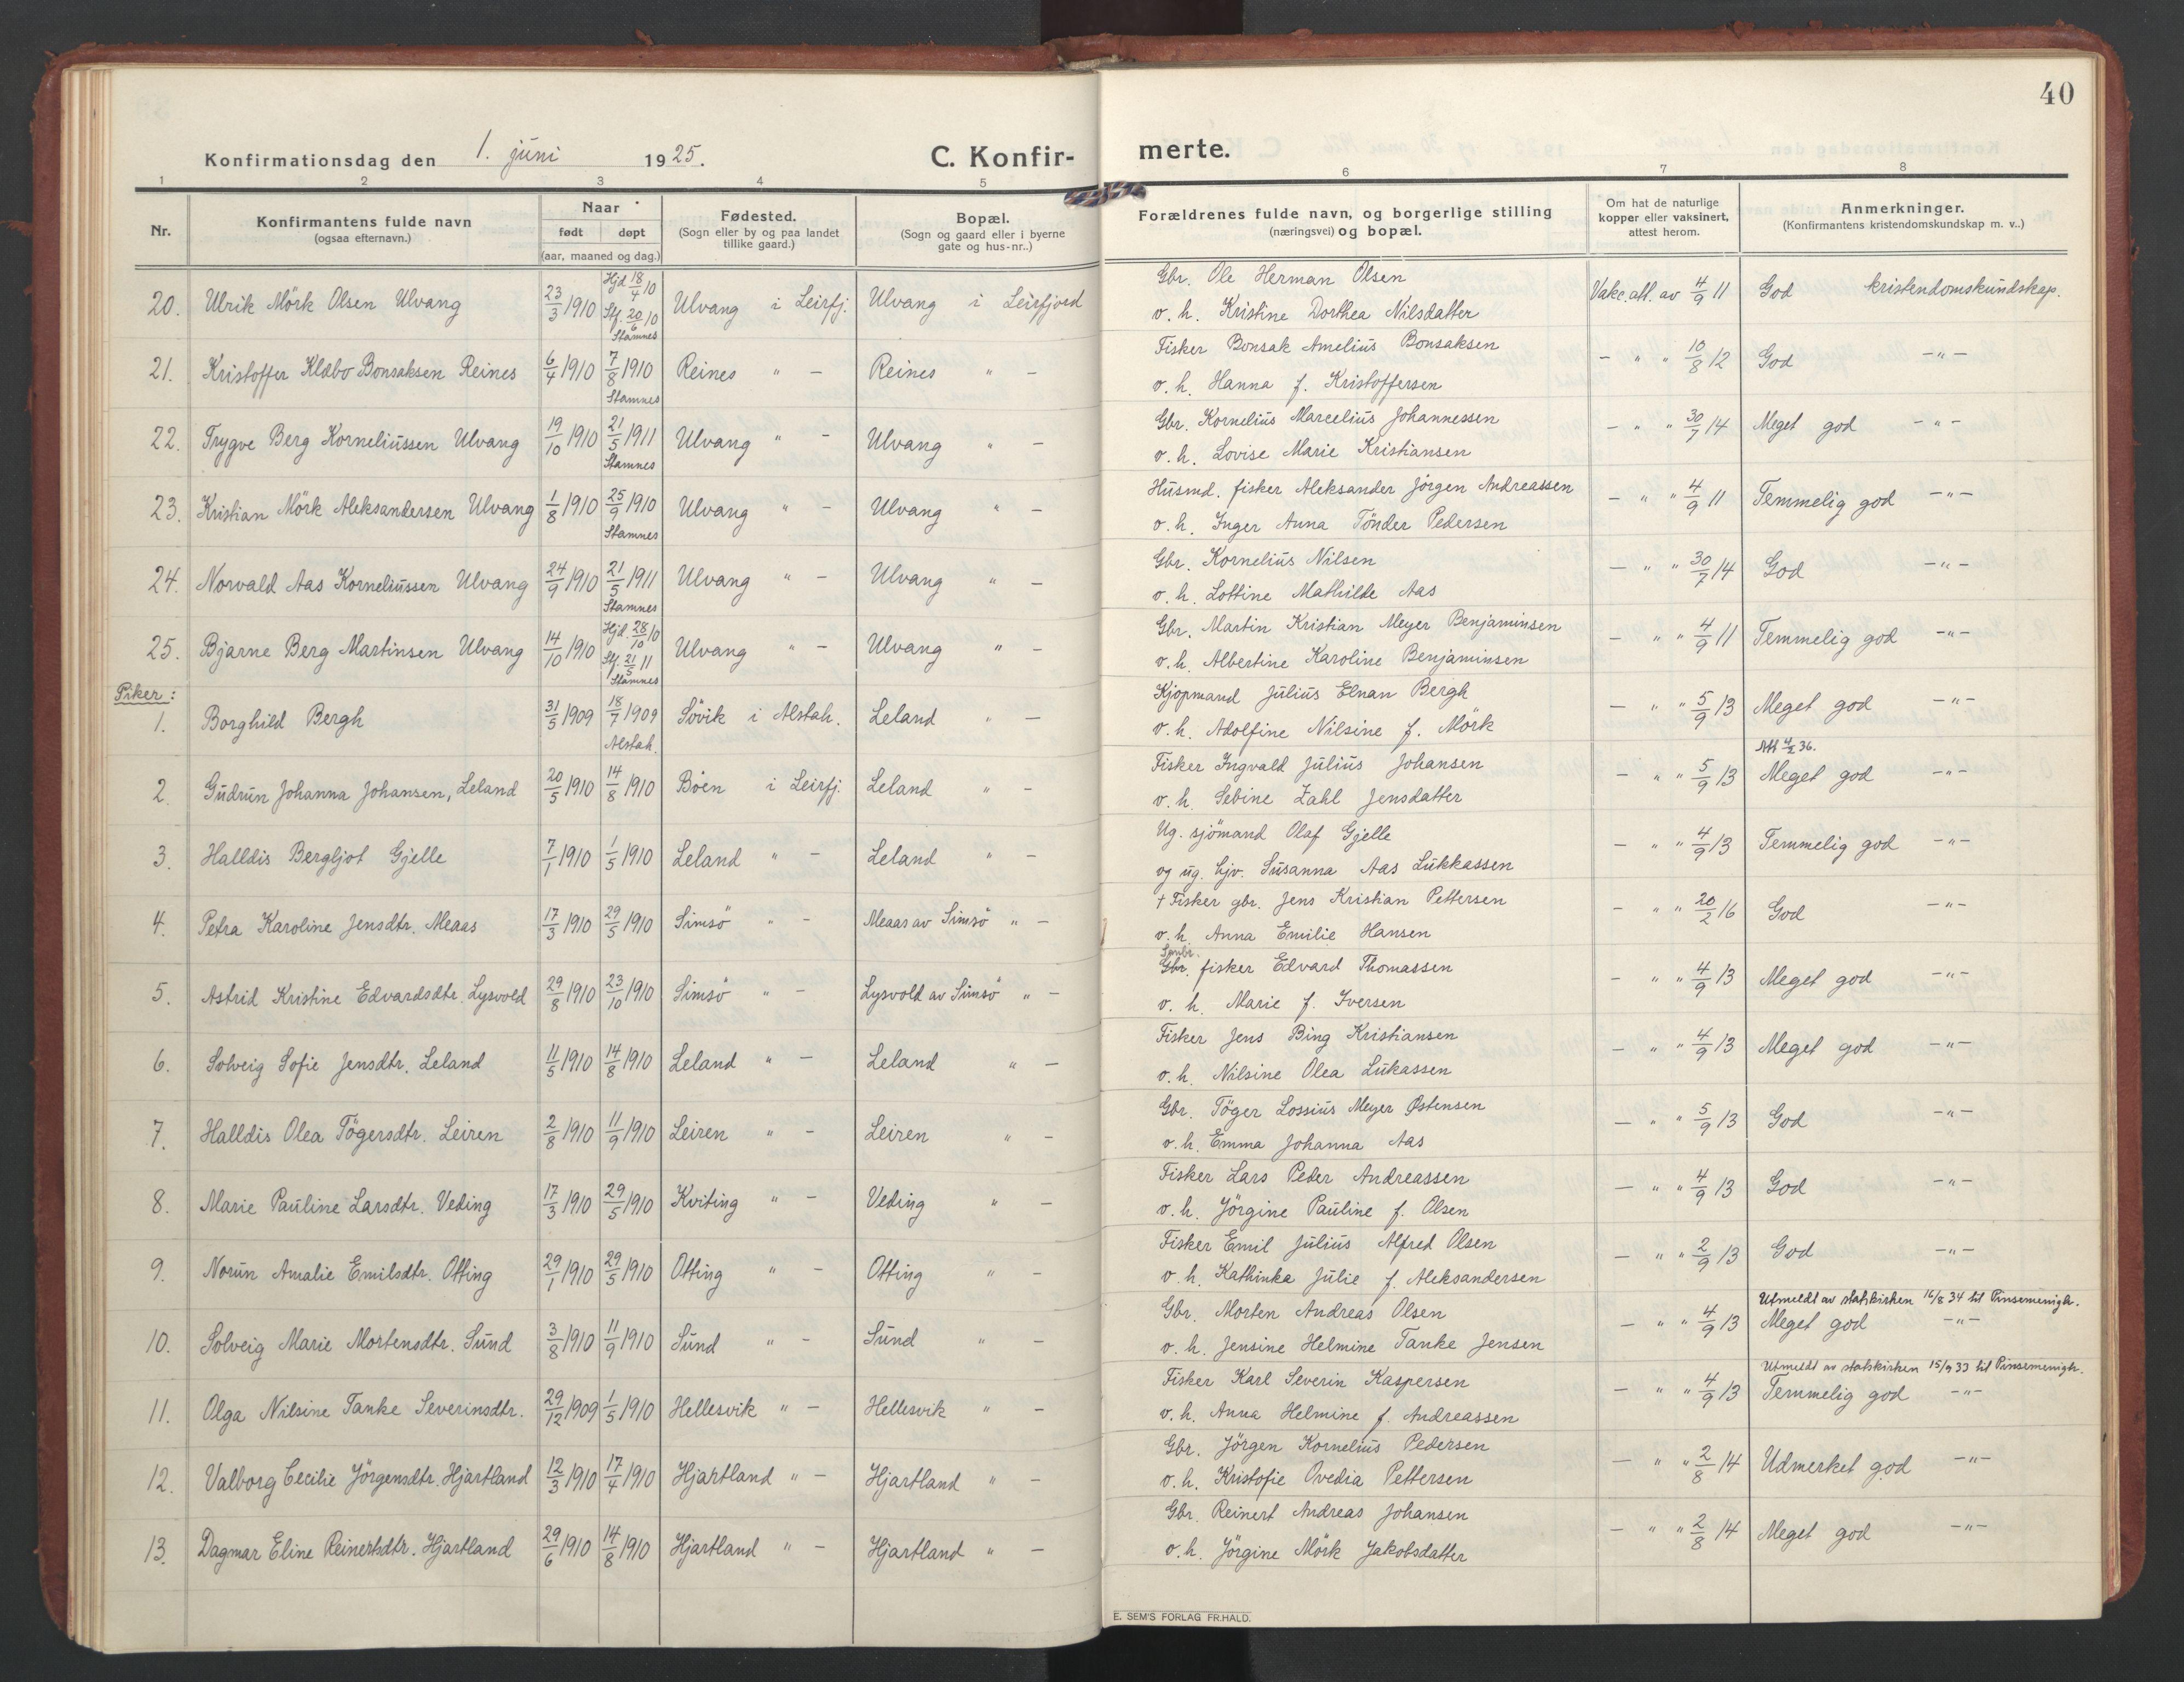 40
Konfirmationsdag den 1. juni 1925.
C. Konfirmerte.
1 2 3 4 5 6 7 8
Nr.
Konfirmantens fulde navn
(ogsaa efternavn.)
Naar
født døpt
(aar, maaned og dag.)
Fødested.
(Sogn eller by og paa landet
tillike gaard.)
Bopæl.
(Sogn og gaard eller i byerne
gate og hus-nr..)
Forældrenes fulde navn, og borgerlige stilling
(næringsvei) og bopæl.
Om hat de naturlige
kopper eller vaksinert,
attest herom.
Anmerkninger.
(Konfirmantens kristendomskundskap m. v..)
20. Ulrik Mörk Olsen Ulvang 23/3 1910 Hjd 18/4 10 Stf. 20/6 10 Stamnes Ulvang i Leirfj. Ulvang i Leirfjord Gbr. Ole Herman Olsen Vakc.att. av 4/9 11 God kristendomskundskap.
o. h. Kristine Dorthea Nilsdatter
21. Kristoffer Klæbo Bonsaksen Reines 6/4 1910 7/8 1910 Stamnes Reines " – Reines " – Fisker Bonsak Amelius Bonsaksen – " " 10/8 12 God –"–
o. h. Hanna f. Kristoffersen
22. Trygve Berg Korneliussen Ulvang 19/10 1910 21/5 1911 Stamnes Ulvang " – Ulvang " – Gbr. Kornelius Marcelius Johannessen – " " 30/7 14 Meget god –"–
o. h. Lovise Marie Kristiansen
23. Kristian Mörk Aleksandersen Ulvang 1/8 1910 25/9 1910 Stamnes Ulvang " – Ulvang " – Husmd. fisker Aleksander Jörgen Andreassen – " " 4/9 11 Temmelig god –"–
o. h. Inger Anna Tönder Pedersen
24. Norvald Aas Korneliussen Ulvang 24/9 1910 21/5 1911 Stamnes Ulvang " – Ulvang " – Gbr. Kornelius Nilsen – " " 30/7 14 God –"–
o. h. Lottine Mathilde Aas
25. Bjarne Berg Martinsen Ulvang 14/10 1910 Hjd. 28/10 10 Stf. 21/5 11 Stamnes Ulvang " – Ulvang " – Gbr. Martin Kristian Meyer Benjaminsen – " " 4/9 11 Temmelig god –"–
o. h. Albertine Karoline Benjaminsen
Piker:
1. Borghild Bergh 31/5 1909 18/7 1909 Alstah. Sövik i Alstah. Leland " – Kjøpmand Julius Elnan Bergh – " " 5/9 13 Meget god –"–
o. h. Adolfine Nilsine f. Mörk
2. Gudrun Johanna Johansen, Leland 20/5 1910 14/8 1910 Böen i Leirfj. Leland " – Fisker Ingvald Julius Johansen – " " 5/9 13 Meget god –"–
o. h. Sebine Zahl Jensdatter
3. Halldis Bergljot Gjelle 7/1 1910 1/5 1910 Leland " – Leland " – Ug. sjömand Olaf Gjelle – " " 4/9 13 Temmelig god –"–
og ug. tjv. Susanna Aas Lukkassen
4. Petra Karoline Jensdtr. Meaas 17/3 1910 29/5 1910 Simsö " – Meaas av Simsö " – † Fisker gbr. Jens Kristian Pettersen – " " 20/2 16 God –"–
o. h. Anna Emilie Hansen
5. Astrid Kristine Edvardsdtr. Lysvold 29/8 1910 23/10 1910 Simsö " – Lysvold av Simsö " – Gbr. fisker Edvard Thomassen – " " 4/9 13 Meget god –"–
o. h. Marie f. Iversen
6. Solveig Sofie Jensdtr. Leland 11/5 1910 14/8 1910 Leland " – Leland " – Fisker Jens Bing Kristiansen – " " 4/9 13 Meget god –"–
o. h. Nilsine Olea Lukassen
7. Halldis Olea Tögersdtr. Leiren 2/8 1910 11/9 1910 Leiren " – Leiren " – Gbr. Töger Lossius Meyer Østensen – " " 5/9 13 God –"–
o. h. Emma Johanna Aas
8. Marie Pauline Larsdtr. Veding 17/3 1910 29/5 1910 Kviting " – Veding " – Fisker Lars Peder Andreassen – " " 4/9 13 God –"–
o. h. Jörgine Pauline f. Olsen
9. Norun Amalie Emilsdtr. Otting 29/1 1910 29/5 1910 Otting " – Otting " – Fisker Emil Julius Alfred Olsen – " " 2/9 13 God –"–
o. h. Kathinka Julie f. Aleksandersen
Utmeldt av statskirken 16/8 34 til Pinsemenigh.
10. Solveig Marie Mortensdtr. Sund 3/8 1910 11/9 1910 Sund " – Sund " – Gbr. Morten Andreas Olsen – " " 4/9 13 Meget god –"–
o. h. Jensine Helmine Tanke Jensen
Utmeldt av statskirken 15/9 33 til Pinsemenigh.
11. Olga Nilsine Tanke Severinsdtr. 29/12 1909 1/5 1910 Hellesvik " – Hellesvik " – Fisker Karl Severin Kaspersen – " " 4/9 13 Temmelig god –"–
o. h. Anna Helmine f. Andreassen
12. Valborg Cecilie Jörgensdtr. Hjartland 12/3 1910 17/4 1910 Hjartland " – Hjartland " – Gbr. Jörgen Kornelius Pedersen – " " 2/8 14 Udmerket god –"–
o. h. Kristofie Ovedia Pettersen
13. Dagmar Eline Reinertsdtr. Hjartland 29/6 1910 14/8 1910 Hjartland " – Hjartland " – Gbr. Reinert Andreas Johansen – " " 2/8 14 Meget god –"–
o. h. Jörgine Mörk Jakobsdatter
E. SEM'S FORLAG FR.HALD.